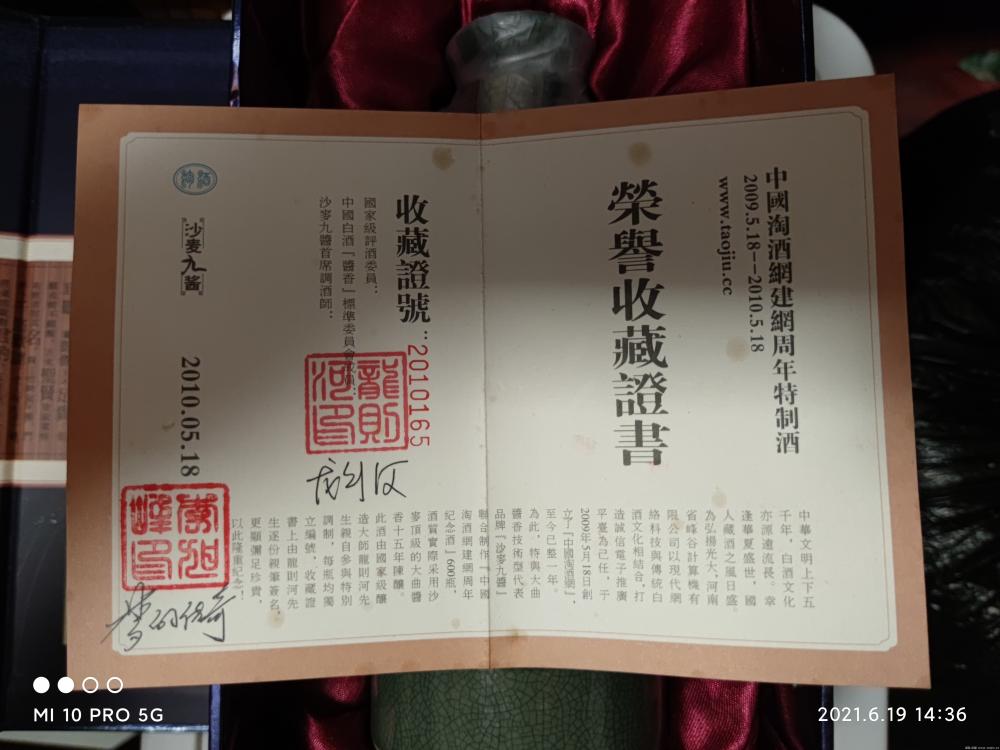 中國淘酒網建網周年特制酒
2009.5.18——2010.5.18
www.taojiu.cc
榮譽收藏證書
中華文明上下五
千年，白酒文化
亦源遠流長。幸
逢華夏盛世，國
人藏酒之風日盛。
為弘揚光大，河南
省峰谷計算機有
限公司以現代網
絡科技與傳統白
酒文化相結合，打
造誠信電子推廣
平臺為己任，于
2009年5月18日創
立了『中國淘酒網』，
至今已整一年。
為此，特與大曲
醬香技術型代表
品牌『沙麥九醬』
聯合制作『中國
淘酒網建網周年
紀念酒』600瓶，
酒質實際采用沙
麥頂級的大曲醬
香十五年陳釀。
此酒由國家級釀
造大師龍則河先
生親自參與特別
調制，每瓶均獨
立編號，收藏證
書上由龍則河先
生逐份親筆簽名，
更顯彌足珍貴，
以此隆重紀念！
收藏證號：2010165
國家級評酒委員：
中國白酒『醬香』標準委員會成員：
沙麥九醬首席調酒師：
龍則河印
沙麥九酱
2010.05.18
MI 10 PRO 5G
2021.6.19 14:36